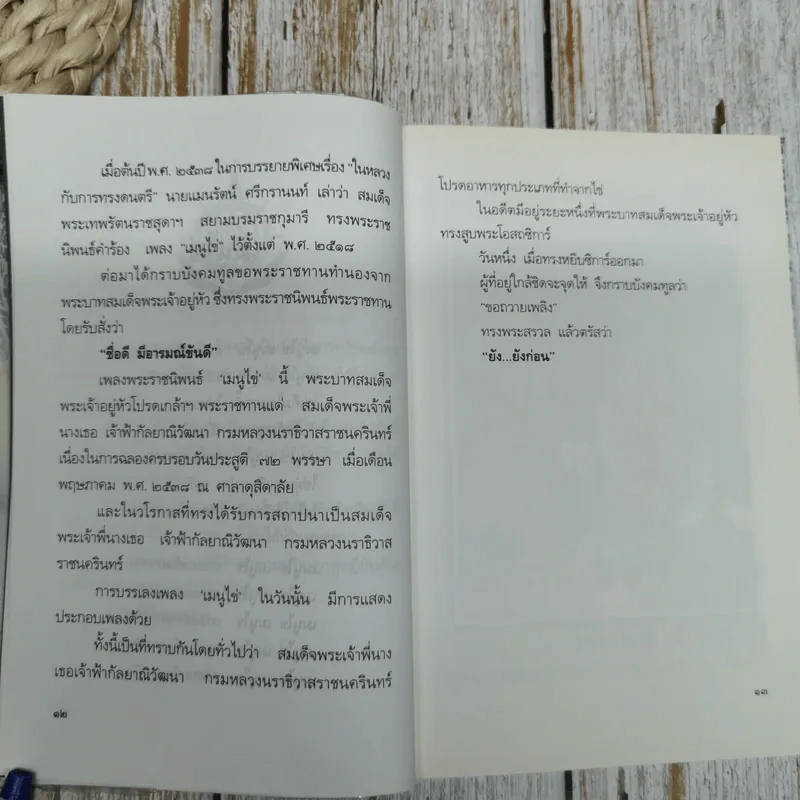 เมื่อต้นปี พ.ศ. ๒๕๓๘ ในการบรรยายพิเศษเรื่อง "ในหลวง
กับการทรงดนตรี" นายแมนรัตน์ ศรีกรานนท์ เล่าว่า สมเด็จ
พระเทพรัตนราชสุดาฯ สยามบรมราชกุมารี ทรงพระราช
นิพนธ์คำร้อง เพลง "เมนูไข่" ไว้ตั้งแต่ พ.ศ. ๒๕๑๘
ต่อมาได้กราบบังคมทูลขอพระราชทานทำนองจาก
พระบาทสมเด็จพระเจ้าอยู่หัว ซึ่งทรงพระราชนิพนธ์พระราชทาน
โดยรับสั่งว่า
"ชื่อดี มีอารมณ์ขันดี"
เพลงพระราชนิพนธ์ 'เมนูไข่' นี้ พระบาทสมเด็จ
พระเจ้าอยู่หัวโปรดเกล้าฯ พระราชทานแด่ สมเด็จพระเจ้าพี่
นางเธอ เจ้าฟ้ากัลยาณิวัฒนา กรมหลวงนราธิวาสราชนครินทร์
เนื่องในการฉลองครบรอบวันประสูติ ๗๒ พรรษา เมื่อเดือน
พฤษภาคม พ.ศ. ๒๕๓๘ ณ ศาลาดุสิดาลัย
และในวโรกาสที่ทรงได้รับการสถาปนาเป็นสมเด็จ
พระเจ้าพี่นางเธอ เจ้าฟ้ากัลยาณิวัฒนา กรมหลวงนราธิวาส
ราชนครินทร์
การบรรเลงเพลง 'เมนูไข่' ในวันนั้น มีการแสดง
ประกอบเพลงด้วย
ทั้งนี้เป็นที่ทราบกันโดยทั่วไปว่า สมเด็จพระเจ้าพี่นาง
เธอเจ้าฟ้ากัลยาณิวัฒนา กรมหลวงนราธิวาสราชนครินทร์
๑๒
โปรดอาหารทุกประเภทที่ทำจากไข่
ในอดีตมีอยู่ระยะหนึ่งที่พระบาทสมเด็จพระเจ้าอยู่หัว
ทรงสูบพระโอสถซิการ์
วันหนึ่ง เมื่อทรงหยิบซิการ์ออกมา
ผู้ที่อยู่ใกล้ชิดจะจุดให้ จึงกราบบังคมทูลว่า
"ขอถวายเพลิง"
ทรงพระสรวล แล้วตรัสว่า
"ยัง...ยังก่อน"
๑๓